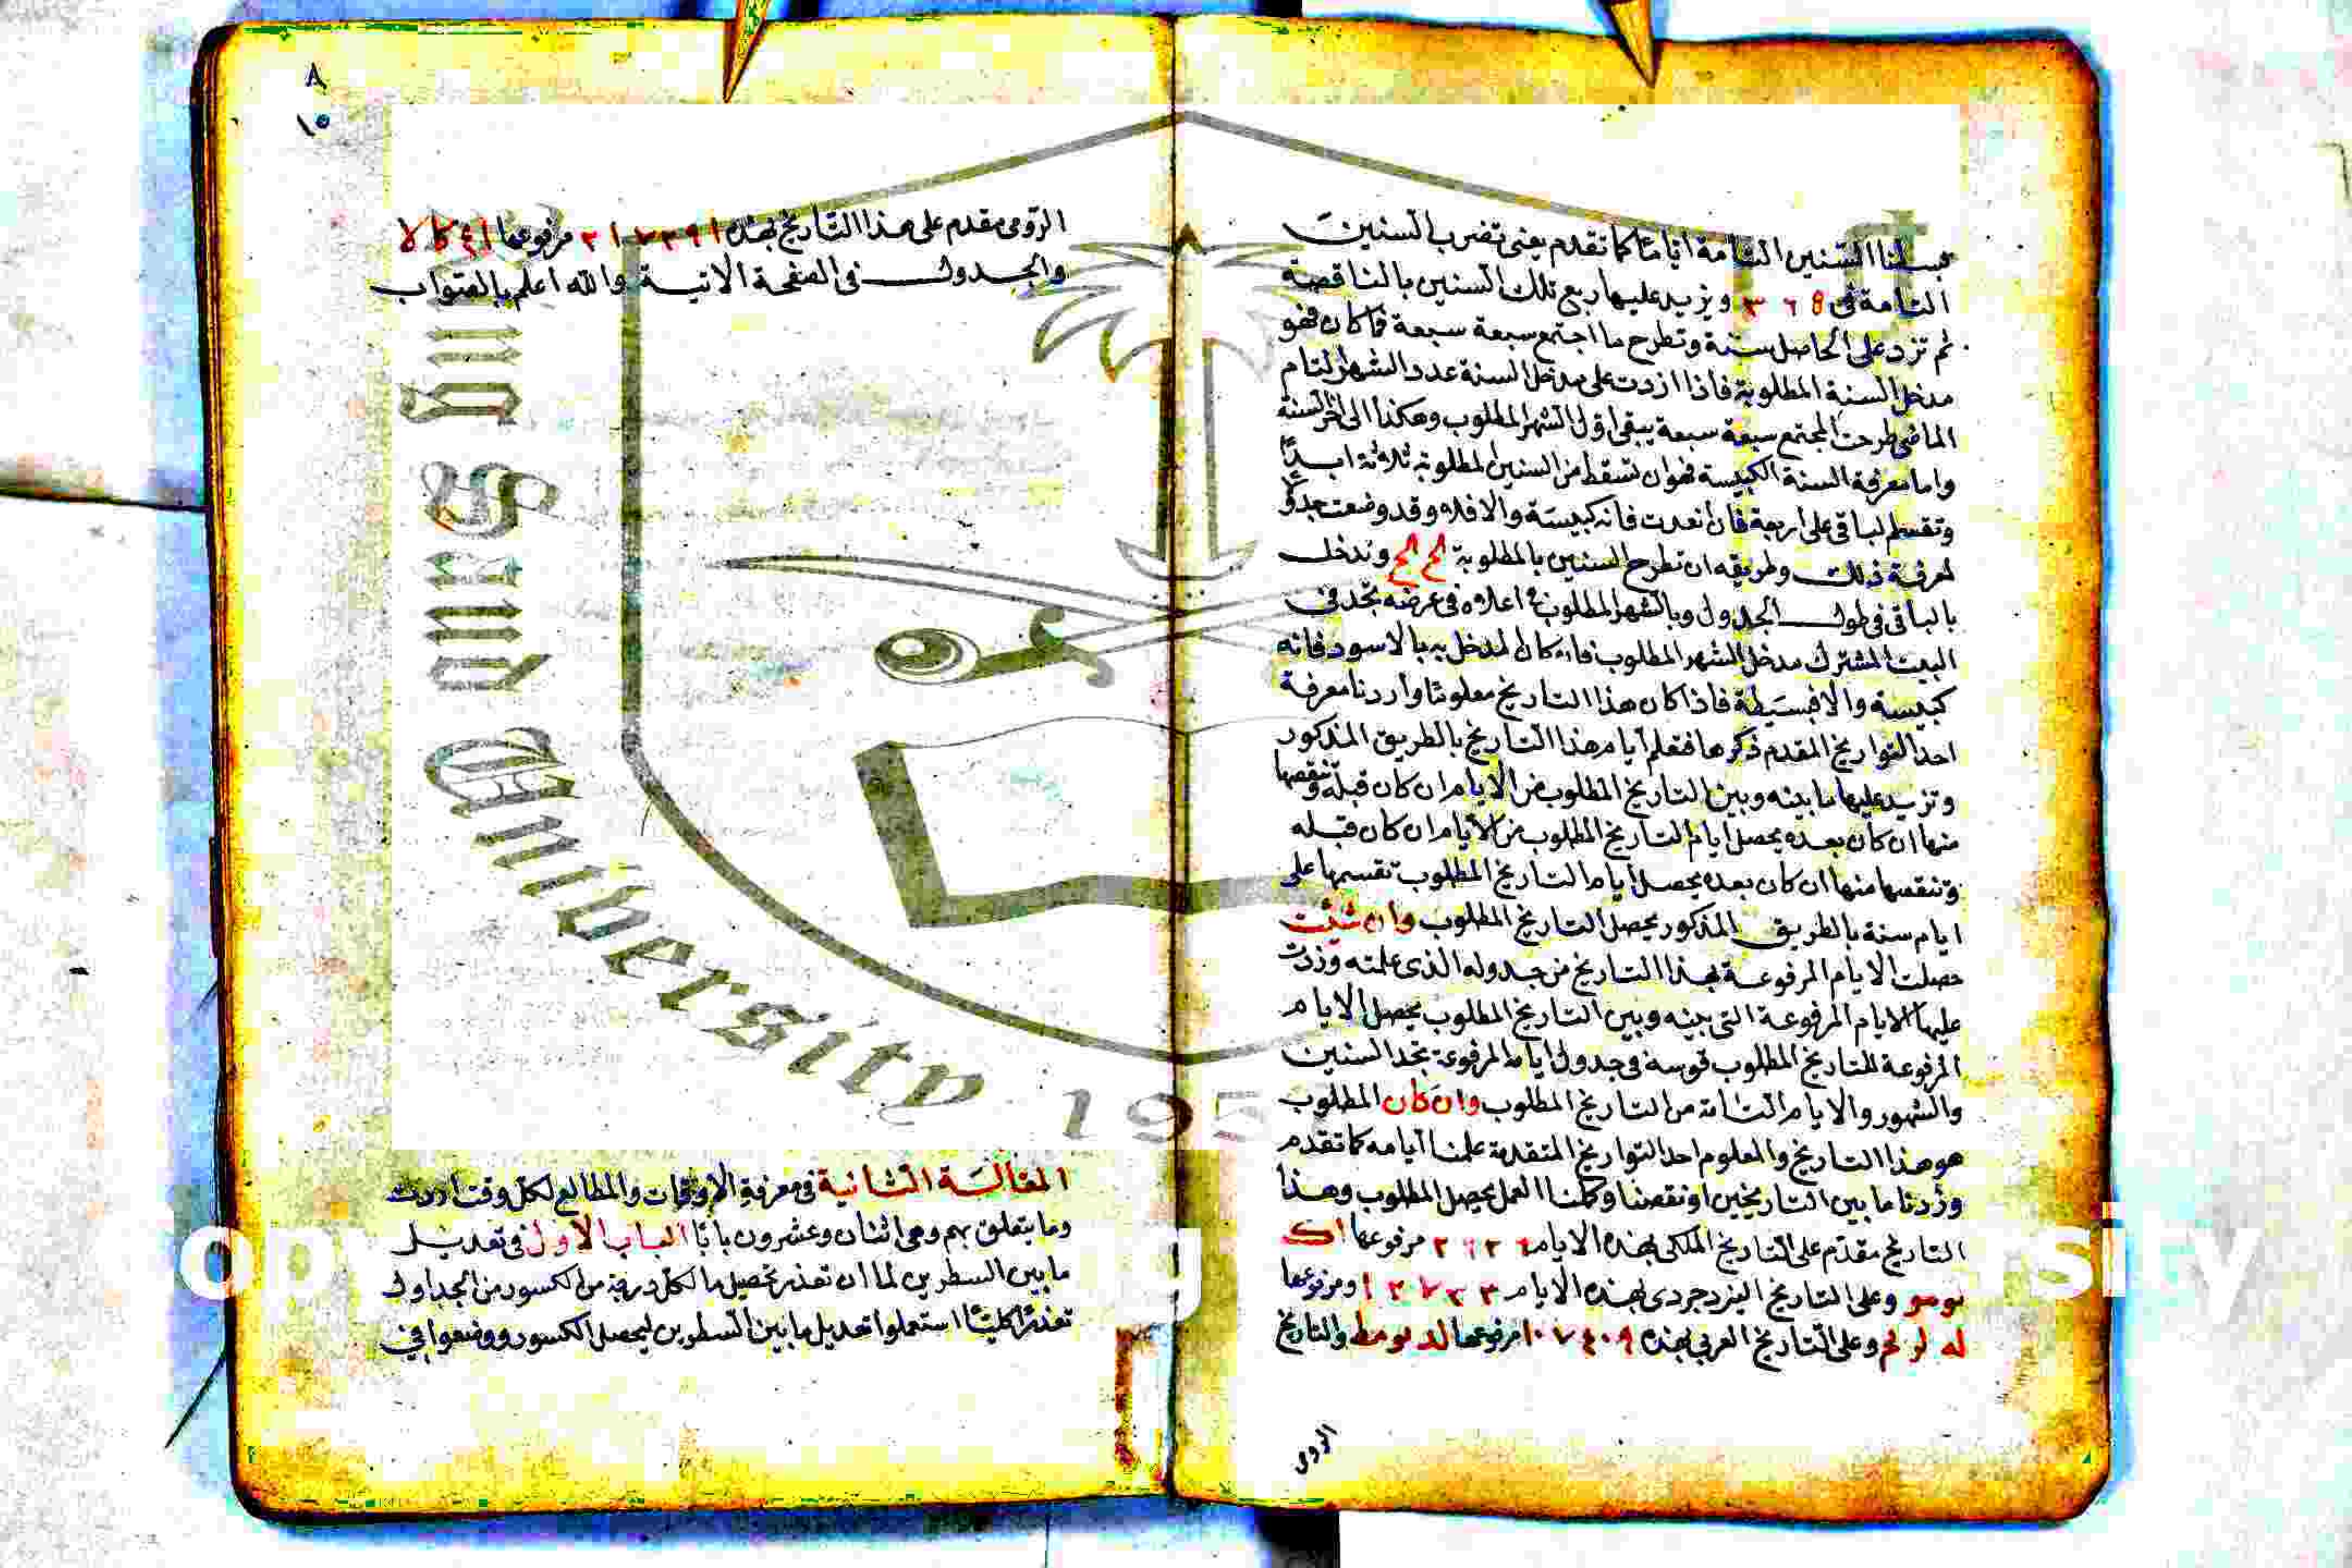 حسبنا السنين التامة اياما كما تقدم يعنى تضرب السنين
التامة فى ٣٦٥ ويزيد عليها ربع تلك السنين بالناقصة
ثم تزد على الحاصل ستة وتطرح ما اجتمع سبعة سبعة فما كان فهو
مدخل السنة المطلوبة فاذا ازدت على مدخل السنة عدد الشهر التام
الماضى طرحت المجتمع سبعة سبعة يبقى اول الشهر المطلوب وهكذا الى اخر السنة
واما معرفة السنة الكبيسة فهو ان تسقط من السنين المطلوبة ثلاثة ابدًا
وتقسم الباقى على اربعة فان انعدت فانه كبيسة والا فلا وقد وضعت جدولا
لمعرفة ذلك وطريقه ان تطرح السنين بالمطلوبة كح كح وتدخل
بالباقى فى طول الجدول وبالشهر المطلوب فى اعلاه فى عرضه تجد فى
البيت المشترك مدخل الشهر المطلوب فان كان المدخل به بالاسود فانه
كبيسة والا فبسيطة فاذا كان هذا التاريخ معلومًا واردنا معرفة
احد التواريخ المقدم ذكرها فنعلم ايام هذا التاريخ بالطريق المذكور
وتزيد عليها ما بينه وبين التاريخ المطلوب من الايام ان كان قبله وتنقصها
منها ان كان بعده يحصل ايام التاريخ المطلوب من الايام ان كان قبله
وتنقصها منها ان كان بعده يحصل ايام التاريخ المطلوب تقسمها على
ايام سنة بالطريق المذكور يحصل التاريخ المطلوب وان شئت
حصلت الايام المرفوعة لهذا التاريخ من جدوله الذى علمته وزدت
عليها الايام المرفوعة التى بينه وبين التاريخ المطلوب يحصل الايام
المرفوعة للتاريخ المطلوب قوسه فى جدول ايامه المرفوعة تجد السنين
والشهور والايام التامة من التاريخ المطلوب وان كان المطلوب
هو هذا التاريخ والمعلوم احد التواريخ المتقدمة علمنا ايامه كما تقدم
وزدنا ما بين التاريخين او نقصنا وكملنا العمل يحصل المطلوب وهذا
التاريخ مقدم على التاريخ الملكى بهذه الايام مرفوعها
وعلى التاريخ اليزدجردى بهذه الايام ومرفوعها
له لو لح وعلى التاريخ العربى بهذه ١٠٧٤٠٩ مرفوعها لد نو مط والتاريخ
الرومى
٨
١٥
الرومى مقدم على هذا التاريخ بهذه مرفوعها
والجدول فى الصفحة الاتية والله اعلم بالصواب
المقالة الثانية فى معرفة الاوقات والمطالع لكل وقت اردت
وما يتعلق بهم وهى اثنان وعشرون بابًا الباب الاول فى تعديل
ما بين السطرين لما ان تعذر تحصيل ما لكل درجة من الكسور من الجداول
تعذرًا كليًا استعملوا تعديل ما بين السطرين ليحصل الكسور ووضعوا فى
University 195
opyrig sity